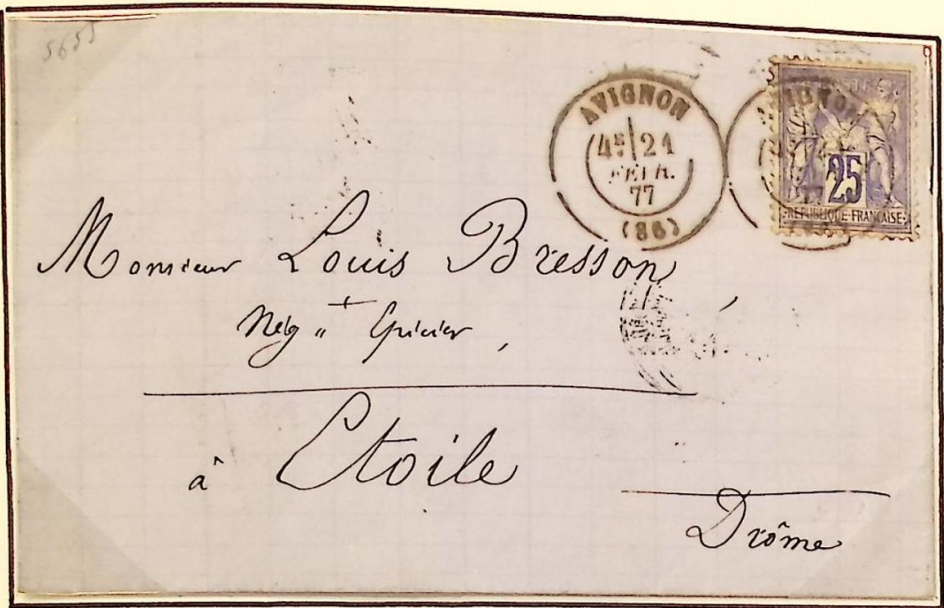 5655
AVIGNON
4E 21
FEVR.
77
(86)
AVIGNON
77
25
REPUBLIQUE FRANCAISE
Monsieur Louis Bresson,
Nég t Epicier,
à Etoile
Drôme